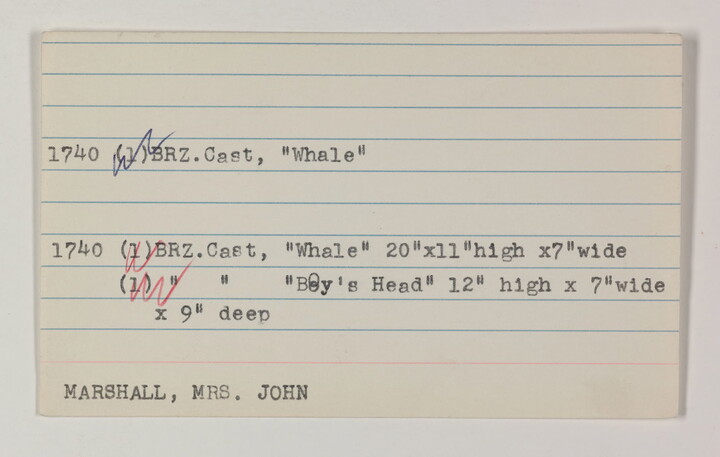 1740 (1)BRZ.Cast, "Whale"
1740 (1)BRZ.Cast, "Whale" 20"x11"high x7"wide
(1) " " "Boy's Head" 12" high x 7"wide
x 9" deep
MARSHALL, MRS. JOHN